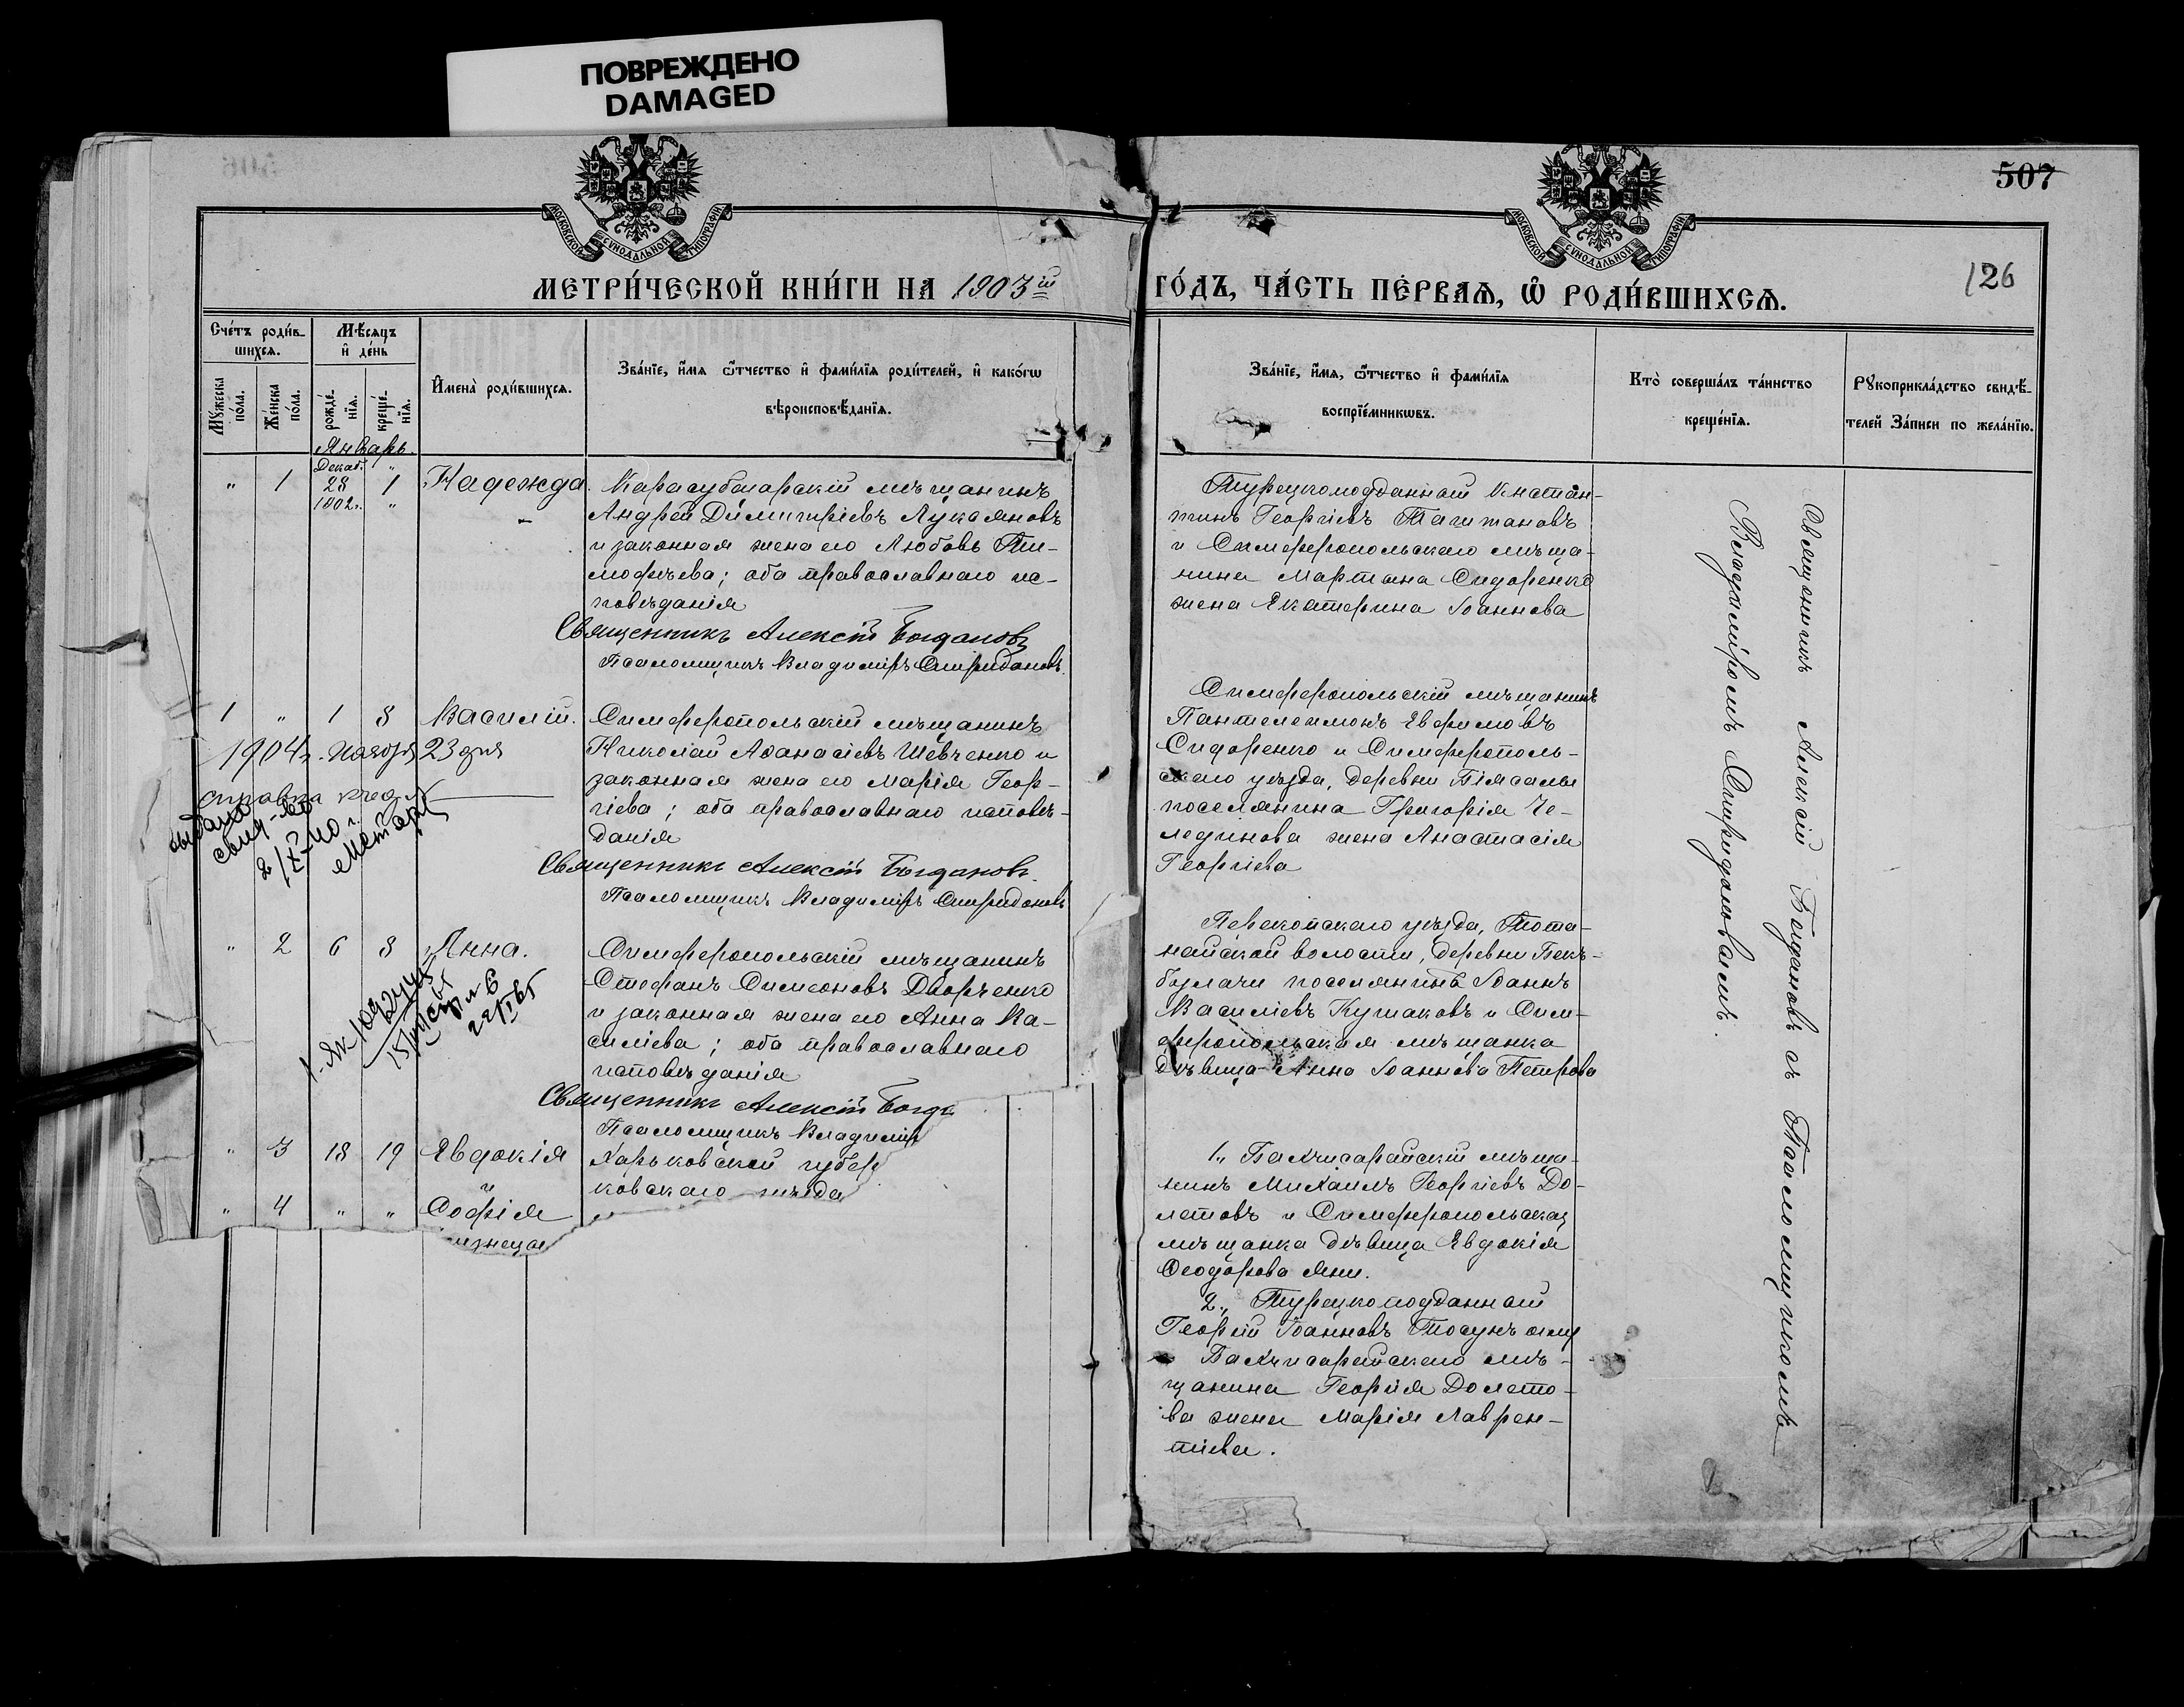 ПОВРЕЖДЕНО
DAMAGED
507
126
МОСКОВСКОЙ СѴНОДАЛЬНОЙ ТИПОГРАФІИ
МОСКОВСКОЙ СѴНОДАЛЬНОЙ ТИПОГРАФІИ
МЕТРИ́ЧЕСКОЙ КНИ́ГИ НА 1903й
ГО́ДЪ, ЧА́СТЬ ПЕ́РВАѦ, Ѡ҆ РОДИ́ВШИХСѦ.
Сче́тъ роди́в-
шихсѧ.
Мѣ́сѧцъ
и҆ де́нь
Мꙋжеска по́ла.
Же́нска по́ла.
рожде́-нїѧ.
креще́-нїѧ.
И҆мена̀ роди́вшихсѧ.
Зва́нїе, и҆́мѧ ѻ҆́тчество и҆ фами́лїѧ роди́телей, и҆ како́гѡ
вѣроисповѣ́данїѧ.
Зва́нїе, и҆́мѧ, ѻ҆́тчество и҆ фами́лїѧ
воспрїе́мникѡвъ.
Кто̀ соверша́лъ та́инство
креще́нїѧ.
Рꙋкоприкла́дство свидѣ́-
телей За́писи по жела́нїю.
Январь.
" 1 Декаб. 28 1902г. 1 " Надежда.
Карасубазарскій мѣщанинъ
Андрей Димитріевъ Лукьяновъ
и законная жена его Любовь Ти-
мофѣева; оба православнаго ис-
повѣданія
Священникъ Алексій Богдановъ
Псаломщикъ Владиміръ Спиридоновъ.
Турецкоподданный Кнстан-
тинъ Георгіевъ
и Симферопольскаго мѣща-
нина Мартына Сидоренко
жена Екатерина Іоаннова
1 " 1 8 Василій.
1904г. Ноября 23 дня
справка
выдано
свид-во
2/X-40 г.
Симферопольскій мѣщанинъ
Николай Аѳанасіевъ Шевченко и
законная жена его Марія Геор-
гіева; оба православнаго исповѣ-
данія
Священникъ Алексій Богдановъ.
Псаломщикъ Владиміръ Спиридоновъ
Симферопольскій мѣщанинъ
Пантелеимонъ Евфимовъ
Сидоренко и Симферополь-
скаго уѣзда, деревни Біясалы
поселянина Григорія Че-
лединова жена Анастасія
Георгіева
" 2 6 8 Анна.
Симферопольскій мѣщанинъ
Стефанъ Симеоновъ Дворченко
и законная жена его Анна Ва-
силіева; оба православнаго
исповѣданія
Священникъ Алексій Богд
Псаломщикъ Владимір
Перекопскаго уѣзда, Тота-
найской волости, деревни Бекъ-
булачи поселянинъ Іоаннъ
Василіевъ Кушаковъ и Сим-
феропольская мѣщанка
дѣвица Анна Іоаннова Петрова
" 3 18 19 Евдокія
и
" 4 " " Софія
близнецы
Харьковской губер
ковскаго уѣзда
1., Бахчисарайскій мѣща-
нинъ Михаилъ Георгіевъ До-
летовъ и Симферопольская
мѣщанка дѣвица Евдокія
Ѳеодорова Яни.
2., Турецкоподданный
Георгій Іоанновъ
и Бахчисарайскаго мѣ-
щанина Георгія Долето-
ва жена Марія Лаврен-
тіева.
Священникъ Алексій Богдановъ съ Псаломщикомъ
Владиміромъ Спиридоновымъ.